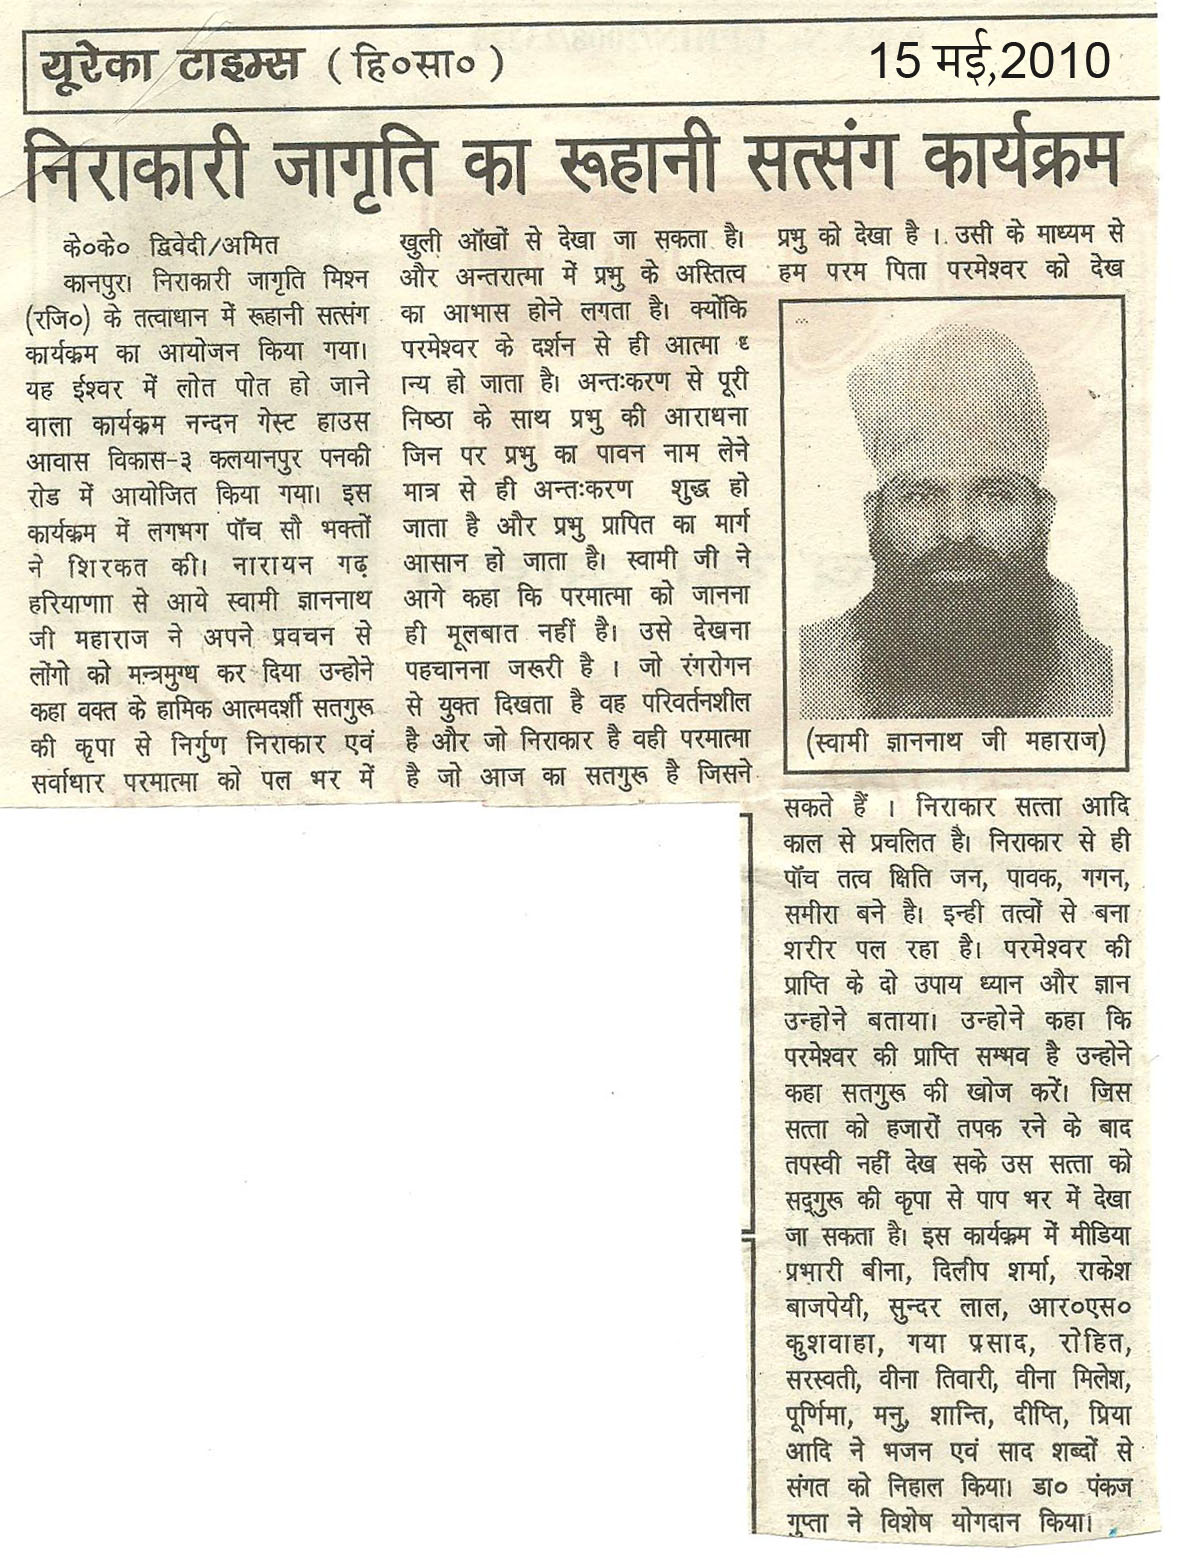 यूरेका टाइम्स (हि०सा०)
15 मई,2010
निराकारी जागृति का रूहानी सत्संग कार्यक्रम
के०के० द्विवेदी/अमित
कानपुर। निराकारी जागृति मिश्न
(रजि०) के तत्वाधान में रूहानी सत्संग
कार्यक्रम का आयोजन किया गया।
यह ईश्वर में लोत पोत हो जाने
वाला कार्यक्रम नन्दन गेस्ट हाउस
आवास विकास-३ कलयानपुर पनकी
रोड में आयोजित किया गया। इस
कार्यक्रम में लगभग पॉच सौ भक्तों
ने शिरकत की। नारायन गढ़
हरियाणाा से आये स्वामी ज्ञाननाथ
जी महाराज ने अपने प्रवचन से
लोंगो को मन्त्रमुग्ध कर दिया उन्होने
कहा वक्त के हामिक आत्मदर्शी सतगुरू
की कृपा से निर्गुण निराकार एवं
सर्वाधार परमात्मा को पल भर में
खुली ऑखों से देखा जा सकता है।
और अन्तरात्मा में प्रभु के अस्तित्व
का आभास होने लगता है। क्योंकि
परमेश्वर के दर्शन से ही आत्मा ध
ान्य हो जाता है। अन्तःकरण से पूरी
निष्ठा के साथ प्रभु की आराधना
जिन पर प्रभु का पावन नाम लेने
मात्र से ही अन्तःकरण शुद्ध हो
जाता है और प्रभु प्रापित का मार्ग
आसान हो जाता है। स्वामी जी ने
आगे कहा कि परमात्मा को जानना
ही मूलबात नहीं है। उसे देखना
पहचानना जरूरी है । जो रंगरोगन
से युक्त दिखता है वह परिवर्तनशील
है और जो निराकार है वही परमात्मा
है जो आज का सतगुरू है जिसने
प्रभु को देखा है । उसी के माध्यम से
हम परम पिता परमेश्वर को देख
(स्वामी ज्ञाननाथ जी महाराज)
सकते हैं । निराकार सत्ता आदि
काल से प्रचलित है। निराकार से ही
पॉच तत्व क्षिति जन, पावक, गगन,
समीरा बने है। इन्ही तत्वों से बना
शरीर पल रहा है। परमेश्वर की
प्राप्ति के दो उपाय ध्यान और ज्ञान
उन्होने बताया। उन्होने कहा कि
परमेश्वर की प्राप्ति सम्भव है उन्होने
कहा सतगुरू की खोज करें। जिस
सत्ता को हजारों तपक रने के बाद
तपस्वी नहीं देख सके उस सत्ता को
सद्गुरू की कृपा से पाप भर में देखा
जा सकता है। इस कार्यक्रम में मीडिया
प्रभारी बीना, दिलीप शर्मा, राकेश
बाजपेयी, सुन्दर लाल, आर०एस०
कुशवाहा, गया प्रसाद, रोहित,
सरस्वती, वीना तिवारी, वीना मिलेश,
पूर्णिमा, मनु, शान्ति, दीप्ति, प्रिया
आदि ने भजन एवं साद शब्दों से
संगत को निहाल किया। डा० पंकज
गुप्ता ने विशेष योगदान किया।